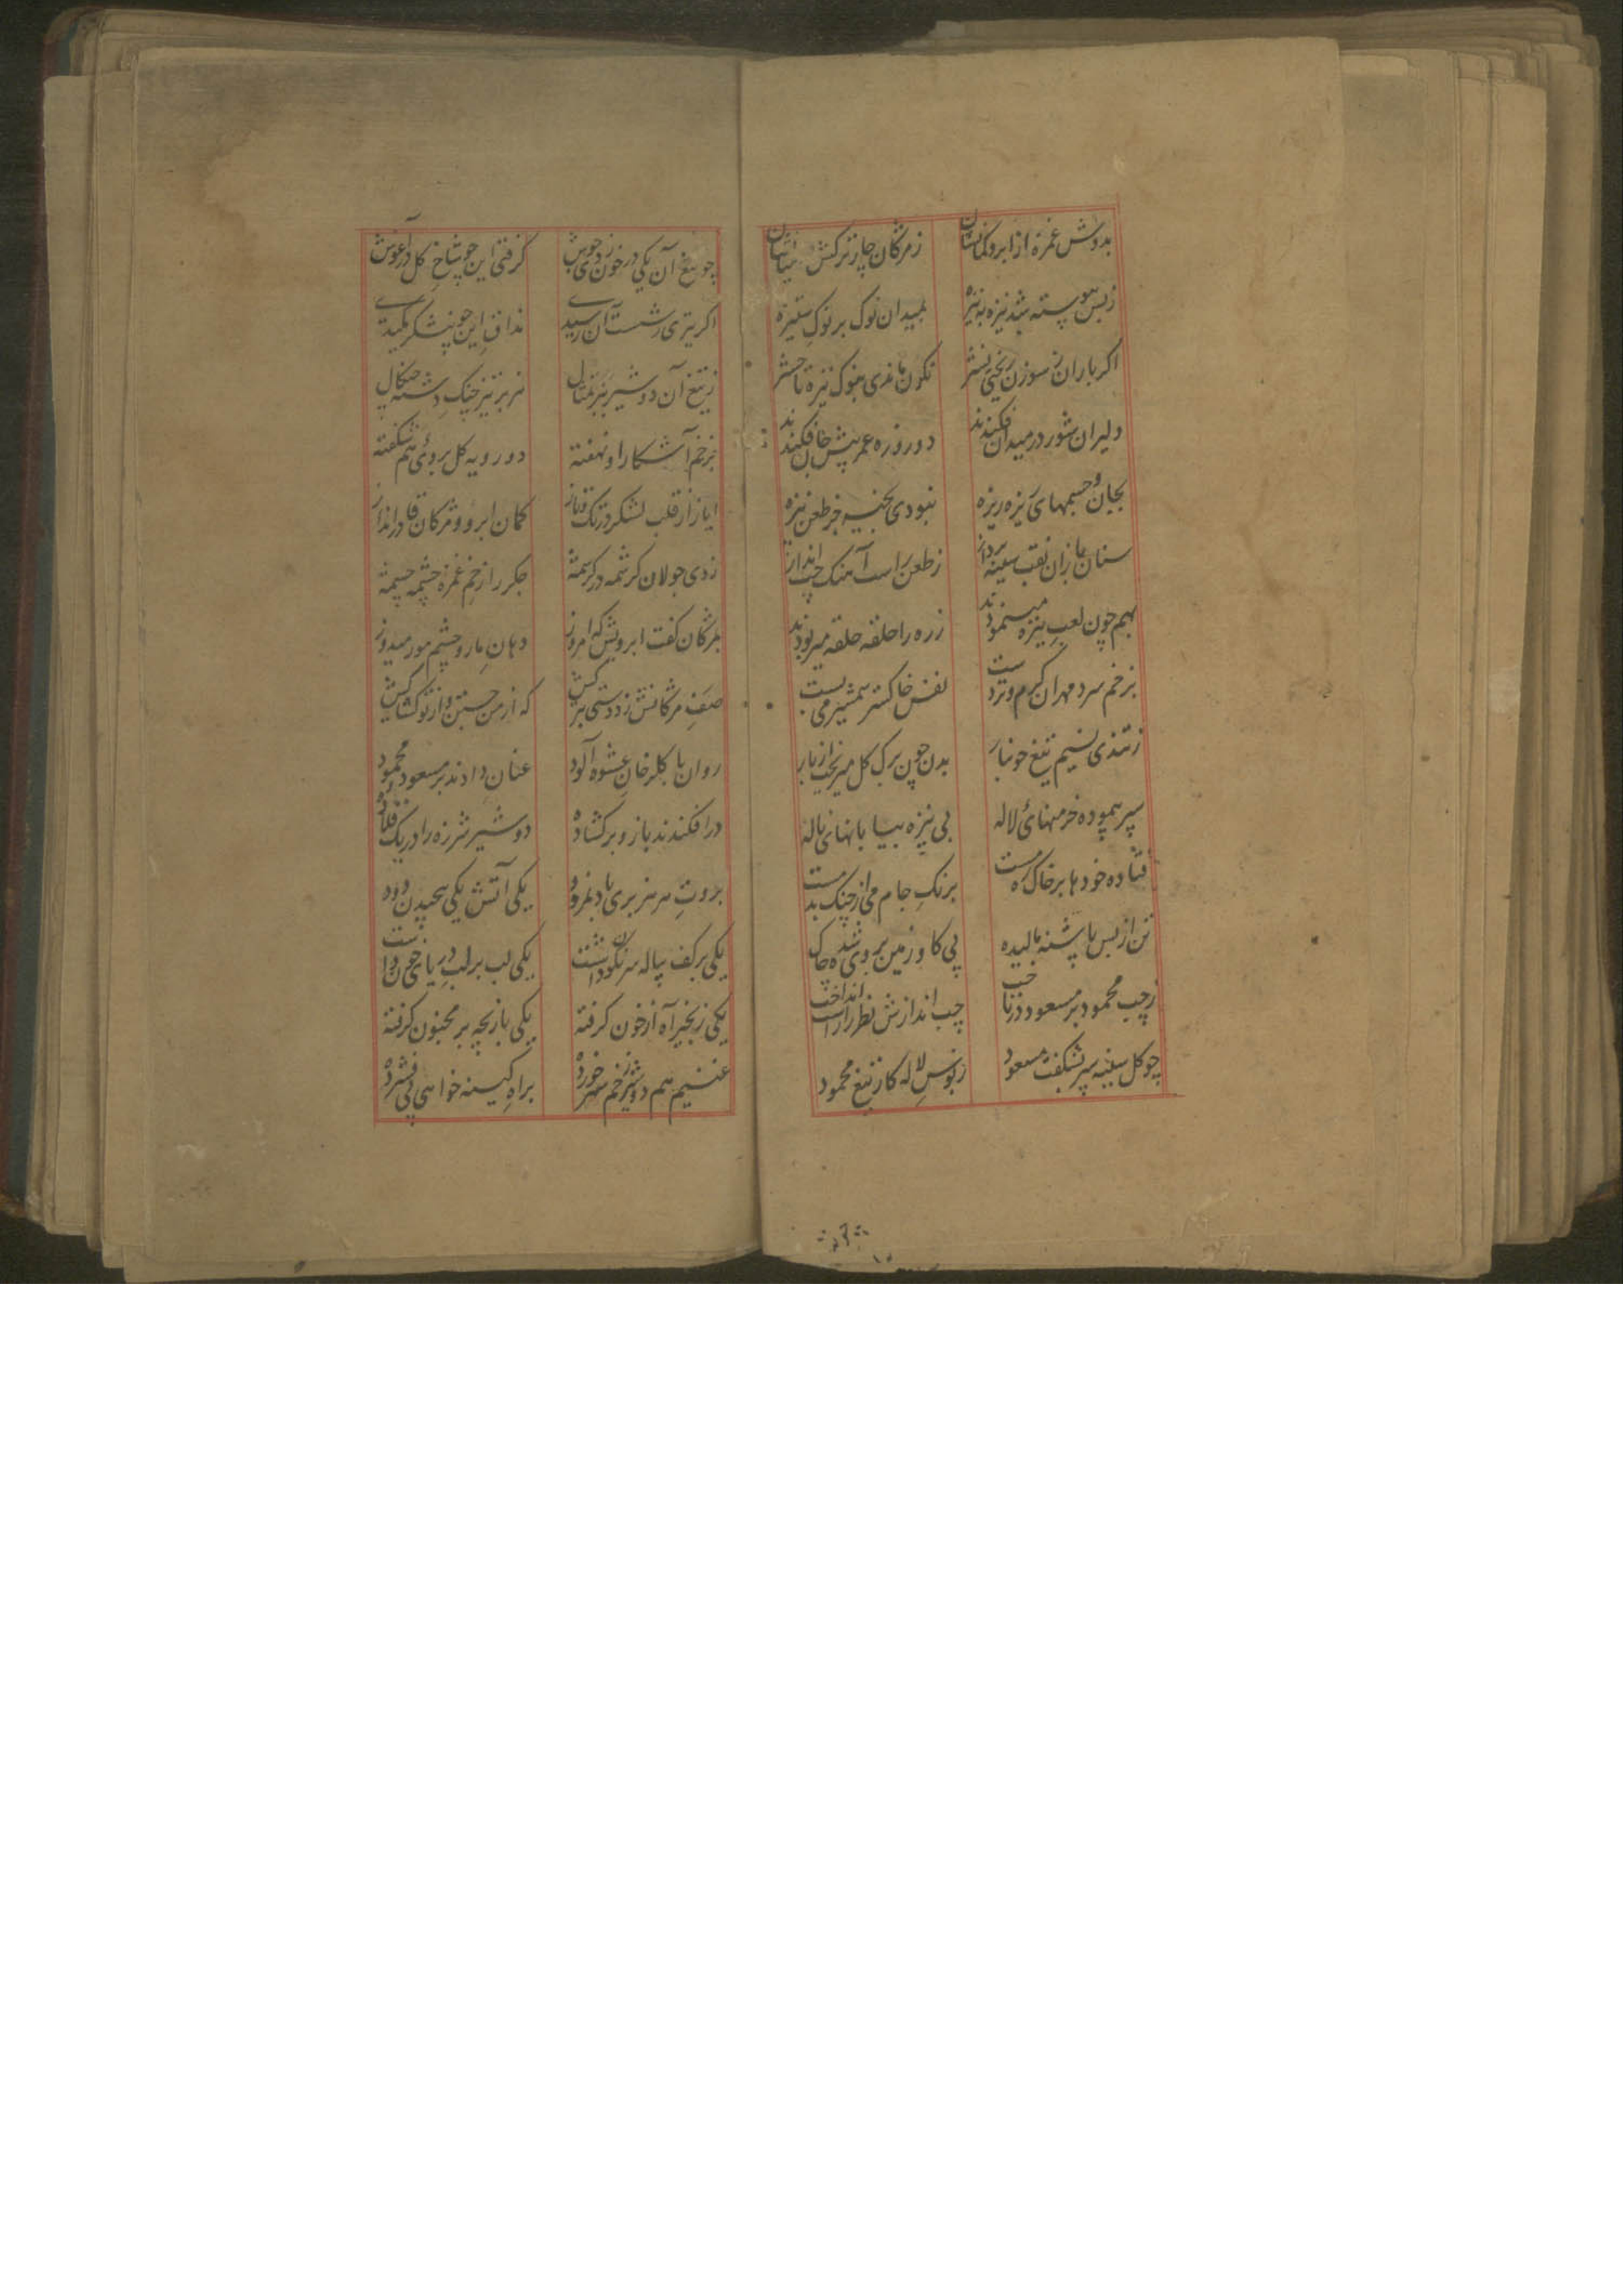 بدوش غمزه از ابرو کمانشان
ز مژکان چار ترکش
ز بس پیوسته شد نیزه به نیزه
بمیدان نوک بر نوک ستیزه
اکر باران سوزن ریختی نشتر
نکون ماندی بنوک نیزه تا حشر
دلیران شور در میدان فکندند
دو روزه عمر پیش جان فکندند
بجان و جسمهای ریزه ریزه
نبودی بخیه جز طعن نیزه
سنان بازان نقب سینه پرداز
ز طعن راست آهنک چپ انداز
بهم چون لعب نیزه مینمودند
زره را حلقه حلقه میربودند
بزخم سرد مهران کرم و تردست
نفس خاکستر شمشیر می بست
ز تندی نسیم تیغ خونبار
بدن چون برک کل میریخت از بار
سپر پیموده خرمنهای لاله
پی نیزه بیابانهای ناله
فتاده خودها بر خاک
برنک جام می از چنک بدمست
تن از بس پاشنه مالیده
پی کاو زمین بر وی شده چاک
ز چپ محمود بر مسعود در تاخت
چپ اندازش نظر را راست انداخت
چو کل سینه سپر بشکفت مسعود
ز بوس لاله کار تیغ محمود
چو تیغ آن یکی در خون زدی جوش
کرفتی این چو شاخ کل در آغوش
اکر تیری ز شست آن رسیدی
مذاق این چو نیشکر مکیدی
ز تیغ آن دو شیر ببر تمثال
هژبر تیز چنک دشنه چنکال
ز زخم آشکارا و نهفته
دو رویه کل بروی هم شکفته
ایاز از قلب لشکر در تک و تاز
کمان ابرو و مژکان قادر انداز
زدی جولان کرشمه در کرشمه
جکر را زخم غمزه چشمه چشمه
بمژکان کفت ابرویش که امروز
دهان مار و چشم مور میدوز
صف مژکانش زد دستی بترکش
که از من جستن و از تو کشاکش
روان با کلرخان عشوه آلود
عنان دادند بر مسعود محمود
در افکندند بازو بر کشاده
دو شیر شرزه را در یک قلاده
بروت هر هژبری باد نمرود
یکی آتش یکی پیچیدن دود
یکی بر کف پیاله سرنکون داشت
یکی لب بر لب دریای خون داشت
یکی زنجیر آه از خون کرفته
یکی بازیچه بر مجنون کرفته
غنیم هم دو شیر زخم سر خورده
براه کینه خواهی پی فشرده